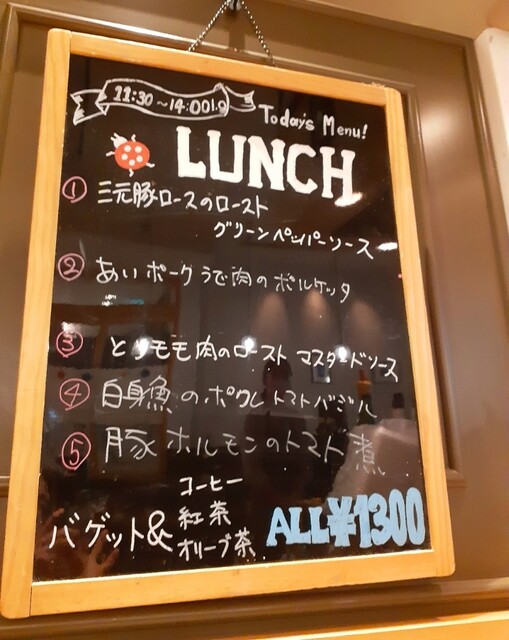 11:30~14:00 l.o
Today's Menu!
LUNCH
① 三元豚ロースのロースト
グリーンペッパーソース
② あいポークうで肉のポルケッタ
③ とりモモ肉のロースト マスタードソース
④ 白身魚のポワレ トマトバジル
⑤ 豚ホルモンのトマト煮
コーヒー
バゲット& 紅茶
オリーブ茶
ALL¥1300